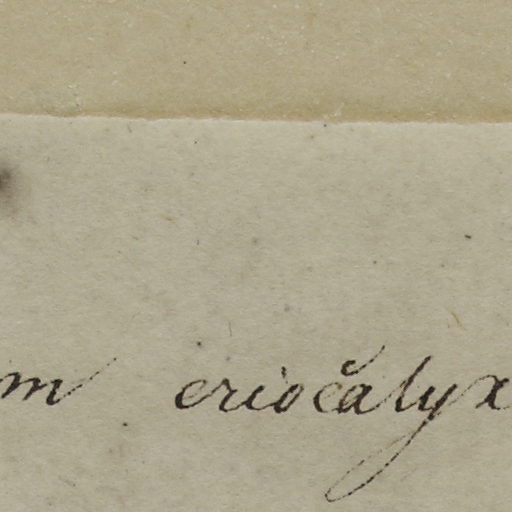 m eriocălyx